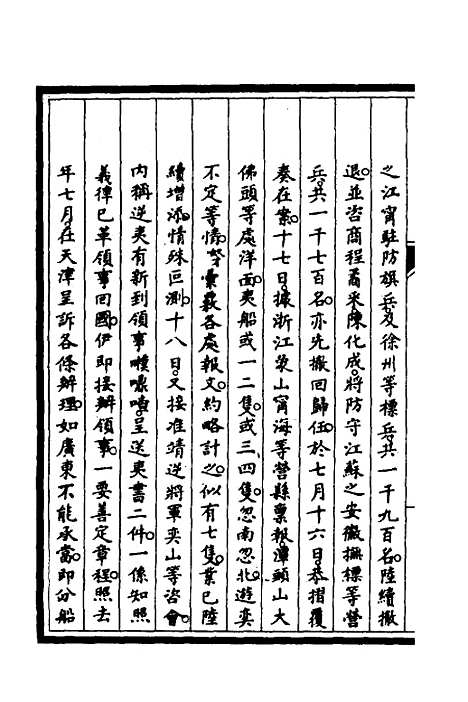 之江甯駐防旗兵。及徐州等標兵共一千九百名。陸續撤
退。並咨商程矞采陳化成。將防守江蘇之安徽撫標等營
兵。共一千七百名。亦先撤回歸伍。於七月十六日。恭摺覆
奏在案。十七日。據浙江象山甯海等營縣稟報。潭頭山大
佛頭等處洋面。夷船或一二隻。或三四隻。忽南忽北。遊奕
不定等情。彙覈各處報文。約略計之。似有七隻。業已陸
續增添。情殊叵測。十八日。又接准靖逆將軍奕山等咨會。
內稱逆夷有新到領事噗嚟喳。呈送夷書二件。一係知照
義律已革領事回國。伊即接辦領事。一要善定章程。照去
年七月。在天津呈訴各條辦理。如廣東不能承當。即分船